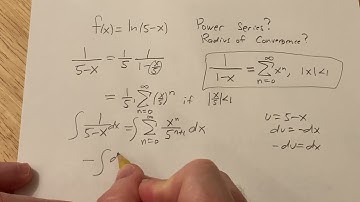 f(x) = ln(5-x)
Power Series?
Radius of Convergence?
1/(5-x) = 1/5 1/(1-x/5)
1/(1-x) = ∑_{n=0}^∞ x^n, |x|<1
= 1/5 ∑_{n=0}^∞ (x/5)^n if |x/5|<1
∫ 1/(5-x) dx = ∫ ∑_{n=0}^∞ x^n/5^{n+1} dx
u = 5-x
du = -dx
-du = dx
-∫